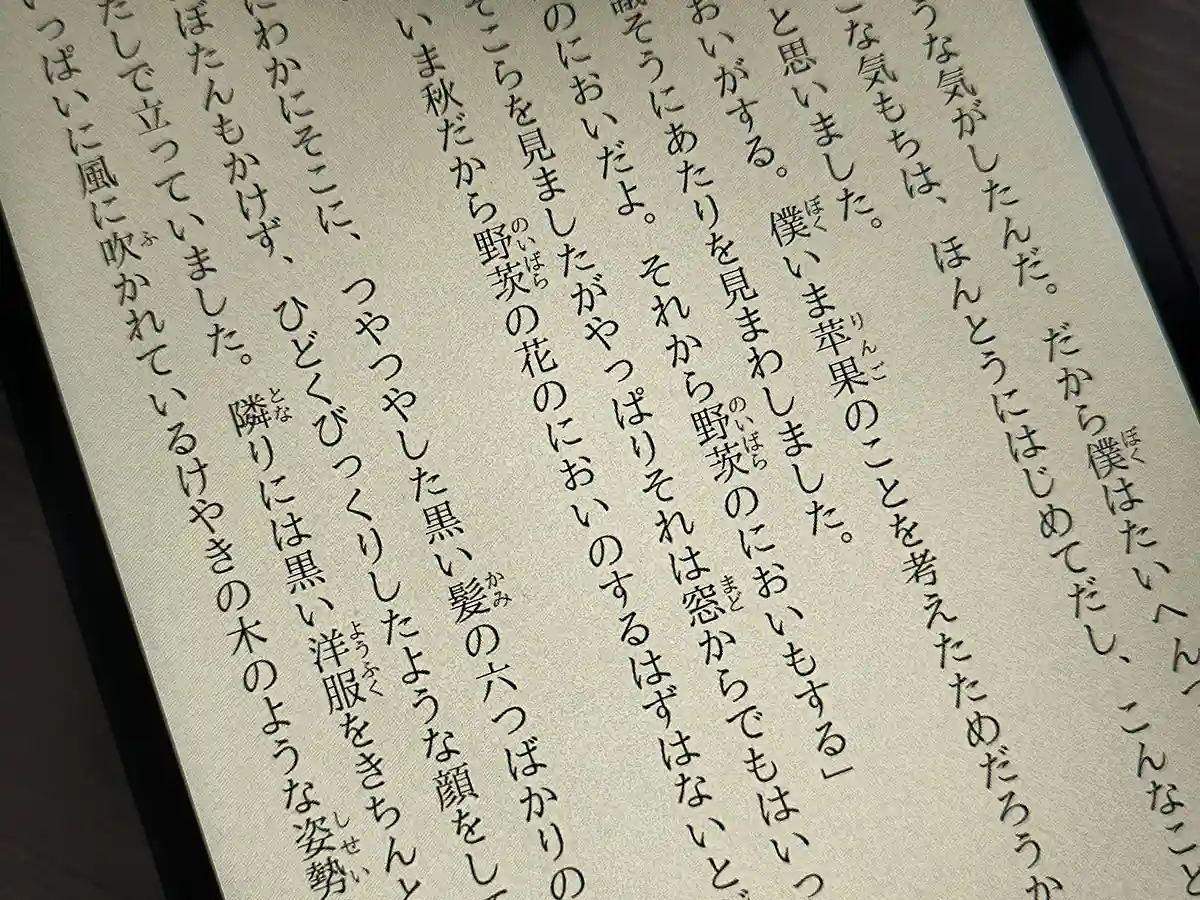 うな気がしたんだ。だから僕はたいへん
こな気もちは、ほんとうにはじめてだし、こんなこと
と思いました。
おいがする。僕いま苹果のことを考えたためだろうか
議そうにあたりを見まわしました。
のにおいだよ。それから野茨のにおいもする」
そこらを見ましたがやっぱりそれは窓からでもはいっ
いま秋だから野茨の花のにおいのするはずはないと
にわかにそこに、つやつやした黒い髪の六つばかりの
ぼたんもかけず、ひどくびっくりしたような顔をして
たしで立っていました。隣りには黒い洋服をきちんと
いっぱいに風に吹かれているけやきの木のような姿勢